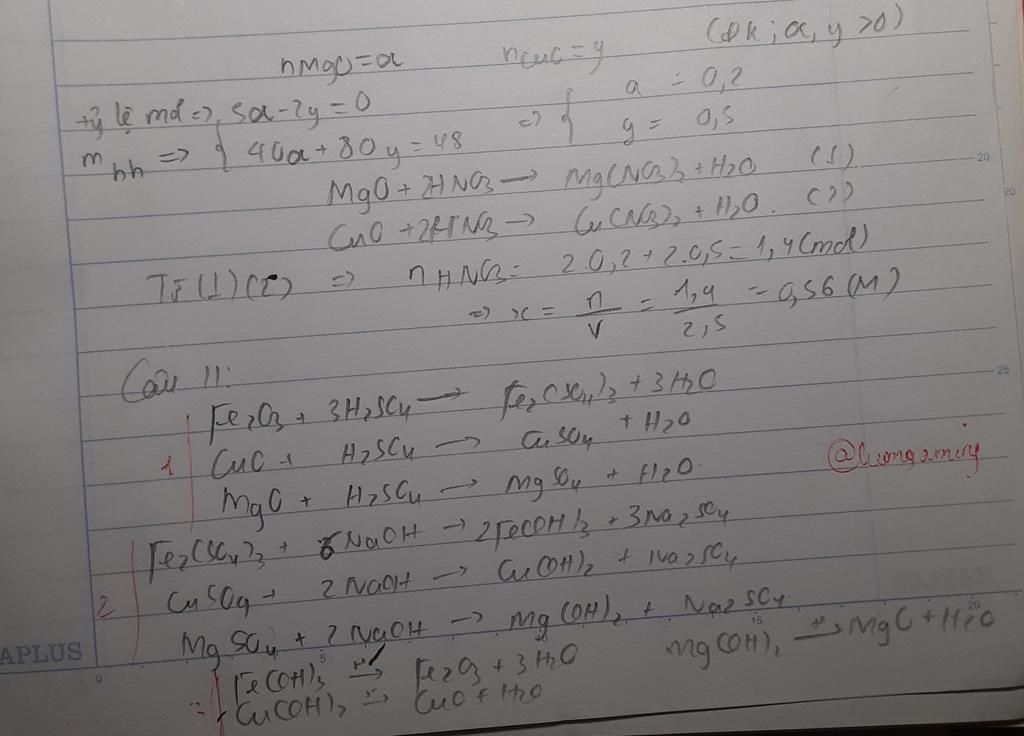 (Đk; a, y >0)
nMgO = a nCuO = y
tỷ lệ mol => 5a - 2y = 0
m hh => { 40a + 80y = 48 => { a = 0,2
y = 0,5
MgO + 2HNO3 → Mg(NO3)2 + H2O (1)
CuO + 2HNO3 → Cu(NO3)2 + H2O. (2)
Từ (1)(2) => nHNO3 = 2.0,2 + 2.0,5 = 1,4 (mol)
=> x = n/V = 1,4/2,5 = 0,56 (M)
Câu 11:
Fe2O3 + 3H2SO4 → Fe2(SO4)3 + 3H2O
1 CuO + H2SO4 → CuSO4 + H2O
MgO + H2SO4 → MgSO4 + H2O
@luongaminy
Fe2(SO4)3 + 6NaOH → 2Fe(OH)3 + 3Na2SO4
2 CuSO4 + 2NaOH → Cu(OH)2 + Na2SO4
MgSO4 + 2NaOH → Mg(OH)2 + Na2SO4
Fe(OH)3 → Fe2O3 + 3H2O Mg(OH)2 → MgO + H2O
Cu(OH)2 → CuO + H2O
APLUS
0
5
15
20
20
20
25